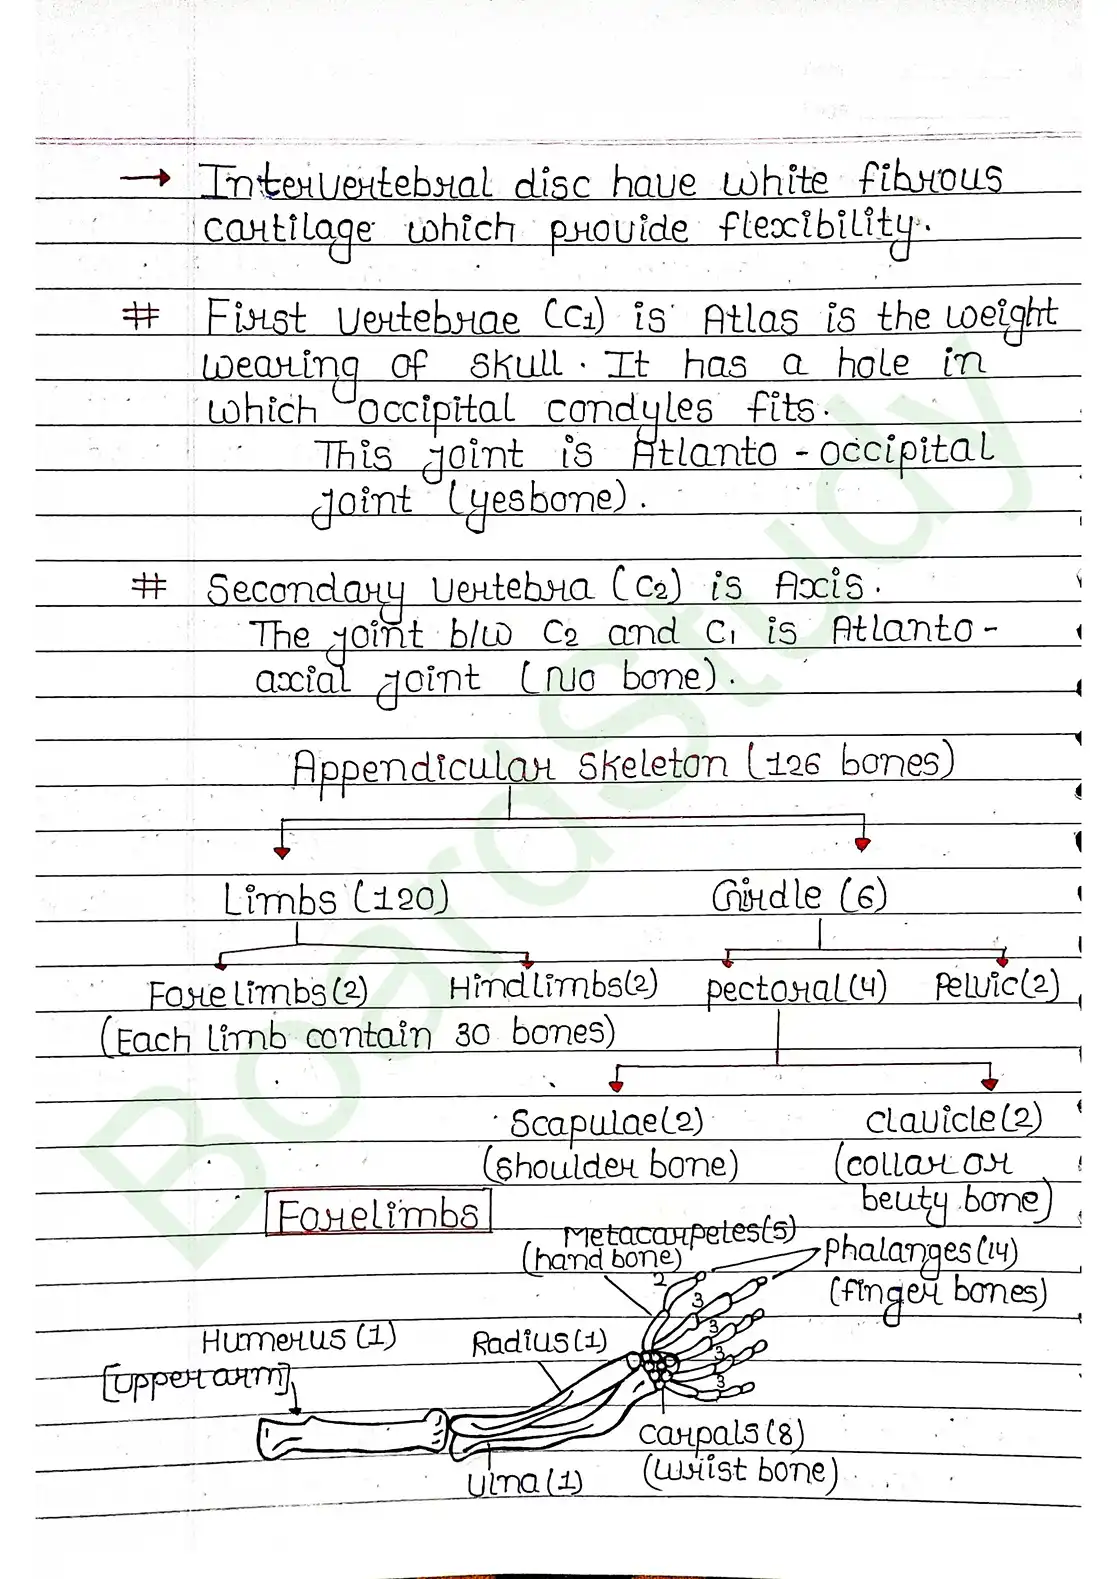 → Intervertebral disc have white fibrous
cartilage which provide flexibility.
# First vertebrae (C1) is Atlas is the weight
wearing of skull. It has a hole in
which occipital condyles fits.
This joint is Atlanto-occipital
joint (yesbone).
# Secondary vertebra (C2) is Axis.
The joint b/w C2 and C1 is Atlanto-
axial joint (No bone).
Appendicular skeleton (126 bones)
Limbs (120) Girdle (6)
Forelimbs(2) Hindlimbs(2) pectoral(4) Pelvic(2)
(Each limb contain 30 bones)
Scapulae(2) clavicle(2)
(shoulder bone) (collar or
beuty bone)
Forelimbs
Metacarpetes(5)
(hand bone)
Phalanges(14)
(finger bones)
2
3
3
3
3
Humerus (1) Radius(1)
[upper arm]
carpals(8)
(wrist bone)
Ulna(1)
BoardStudy